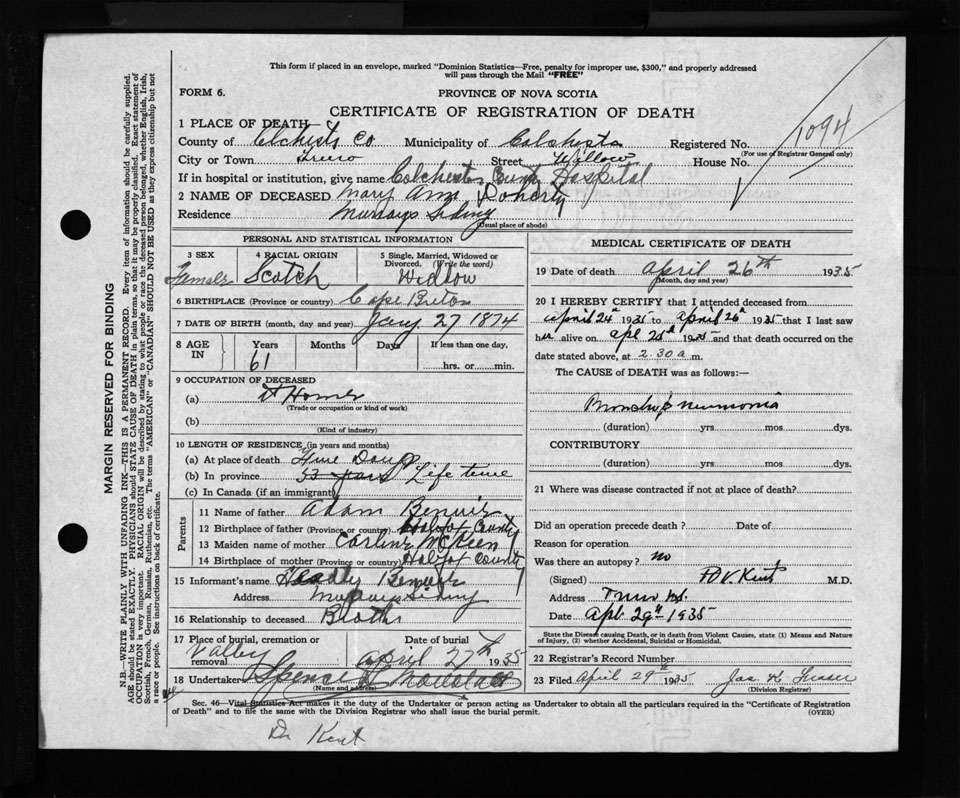 This form if placed in an envelope, marked "Dominion Statistics—Free, penalty for improper use, $300," and properly addressed
will pass through the Mail "FREE"
FORM 6.
PROVINCE OF NOVA SCOTIA
CERTIFICATE OF REGISTRATION OF DEATH
1 PLACE OF DEATH
County of Colchists Co Municipality of Colchists Registered No. 1094
(For use of Registrar General only)
City or Town Truro Street Willow House No.
If in hospital or institution, give name Colchester County Hospital
2 NAME OF DECEASED Mary Ann Doherty
Residence Murrays Siding
(Usual place of abode)
PERSONAL AND STATISTICAL INFORMATION
3 SEX 4 RACIAL ORIGIN 5 Single, Married, Widowed or Divorced. (Write the word)
Female Scotch Widow
6 BIRTHPLACE (Province or country) Cape Breton
7 DATE OF BIRTH (month, day and year) Jany 27 1874
8 AGE IN Years Months Days If less than one day,
61 hrs. or min.
9 OCCUPATION OF DECEASED
(a) At Home
(Trade or occupation or kind of work)
(b)
(Kind of industry)
10 LENGTH OF RESIDENCE (in years and months)
(a) At place of death Five Days
(b) In province 53 years Life time
(c) In Canada (if an immigrant)
Parents
11 Name of father Adam
12 Birthplace of father (Province or country) County
13 Maiden name of mother McKeen
14 Birthplace of mother (Province or country) County
15 Informant's name
Address Murrays Siding
16 Relationship to deceased Brother
17 Place of burial, cremation or removal Date of burial
Valley April 27th 1935
18 Undertaker Spencer
(Name and address)
MEDICAL CERTIFICATE OF DEATH
19 Date of death April 26th 1935
(Month, day and year)
20 I HEREBY CERTIFY that I attended deceased from
April 24th 1935 to April 26th 1935 that I last saw
her alive on Apl 25th 1935 and that death occurred on the
date stated above, at 2.30 a.m.
The CAUSE of DEATH was as follows:—
Broncho pneumonia
(duration) yrs. mos. dys.
CONTRIBUTORY
(duration) yrs. mos. dys.
21 Where was disease contracted if not at place of death?
Did an operation precede death? Date of
Reason for operation
Was there an autopsy? no
(Signed) Kent M.D.
Address Truro N.S.
Date Apl 29th 1935
State the Disease causing Death, or in death from Violent Causes, state (1) Means and Nature
of Injury, (2) whether Accidental, Suicidal or Homicidal.
22 Registrar's Record Number
23 Filed April 29th 1935 Jas
(Division Registrar)
Sec. 46—Vital Statistics Act makes it the duty of the Undertaker or person acting as Undertaker to obtain all the particulars required in the "Certificate of Registration
of Death" and to file the same with the Division Registrar who shall issue the burial permit.
(OVER)
Dr Kent
MARGIN RESERVED FOR BINDING
N.B.—WRITE PLAINLY WITH UNFADING INK—THIS IS A PERMANENT RECORD. Every item of information should be carefully supplied.
AGE should be stated EXACTLY. PHYSICIANS should STATE CAUSE OF DEATH in plain terms, so that it may be properly classified. Exact statement of
OCCUPATION is very important. RACIAL ORIGIN will be described by stating to what people or race the deceased person belonged, whether English, Irish,
Scottish, French, German, Russian, Ruthenian, etc. The terms "AMERICAN" or "CANADIAN" SHOULD NOT BE USED as they express citizenship but not
a race or people. See instructions on back of certificate.